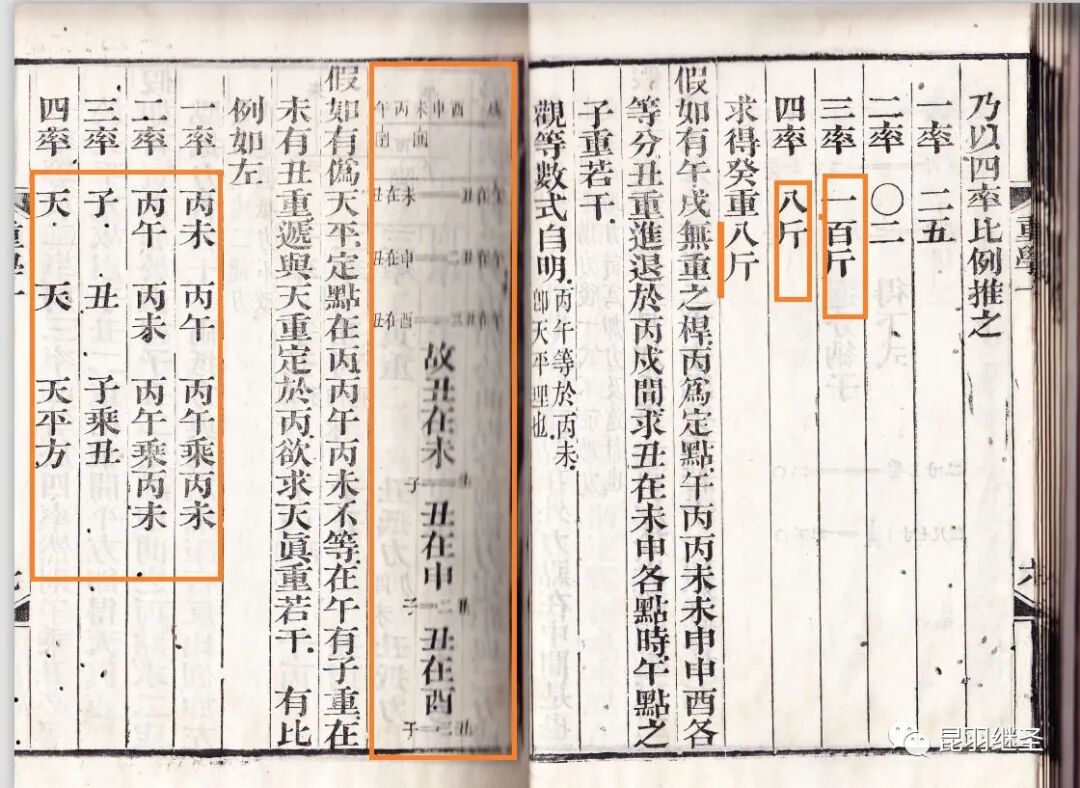 乃以四率比例推之
一率 二五
二率 〇二
三率 一百斤
四率 八斤
求得癸重八斤
假如有午戌無重之桿丙爲定點午丙丙未未申申酉各
等分丑重進退於丙戌間求丑在未申各點時午點之
子重若干
觀等數式自明 丙午等於丙未
即天平理也
酉申未丙午
故丑在未 丑在申 丑在酉
假如有僞天平定點在丙丙午丙未不等在午有子重在
未有丑重遞與天重定於丙欲求天眞重若干 有比
例如左
一率 丙未 丙午 丙午乘丙未
二率 丙午 丙未 丙午乘丙未
三率 子 丑 子乘丑
四率 天 天 天平方
昆羽继圣